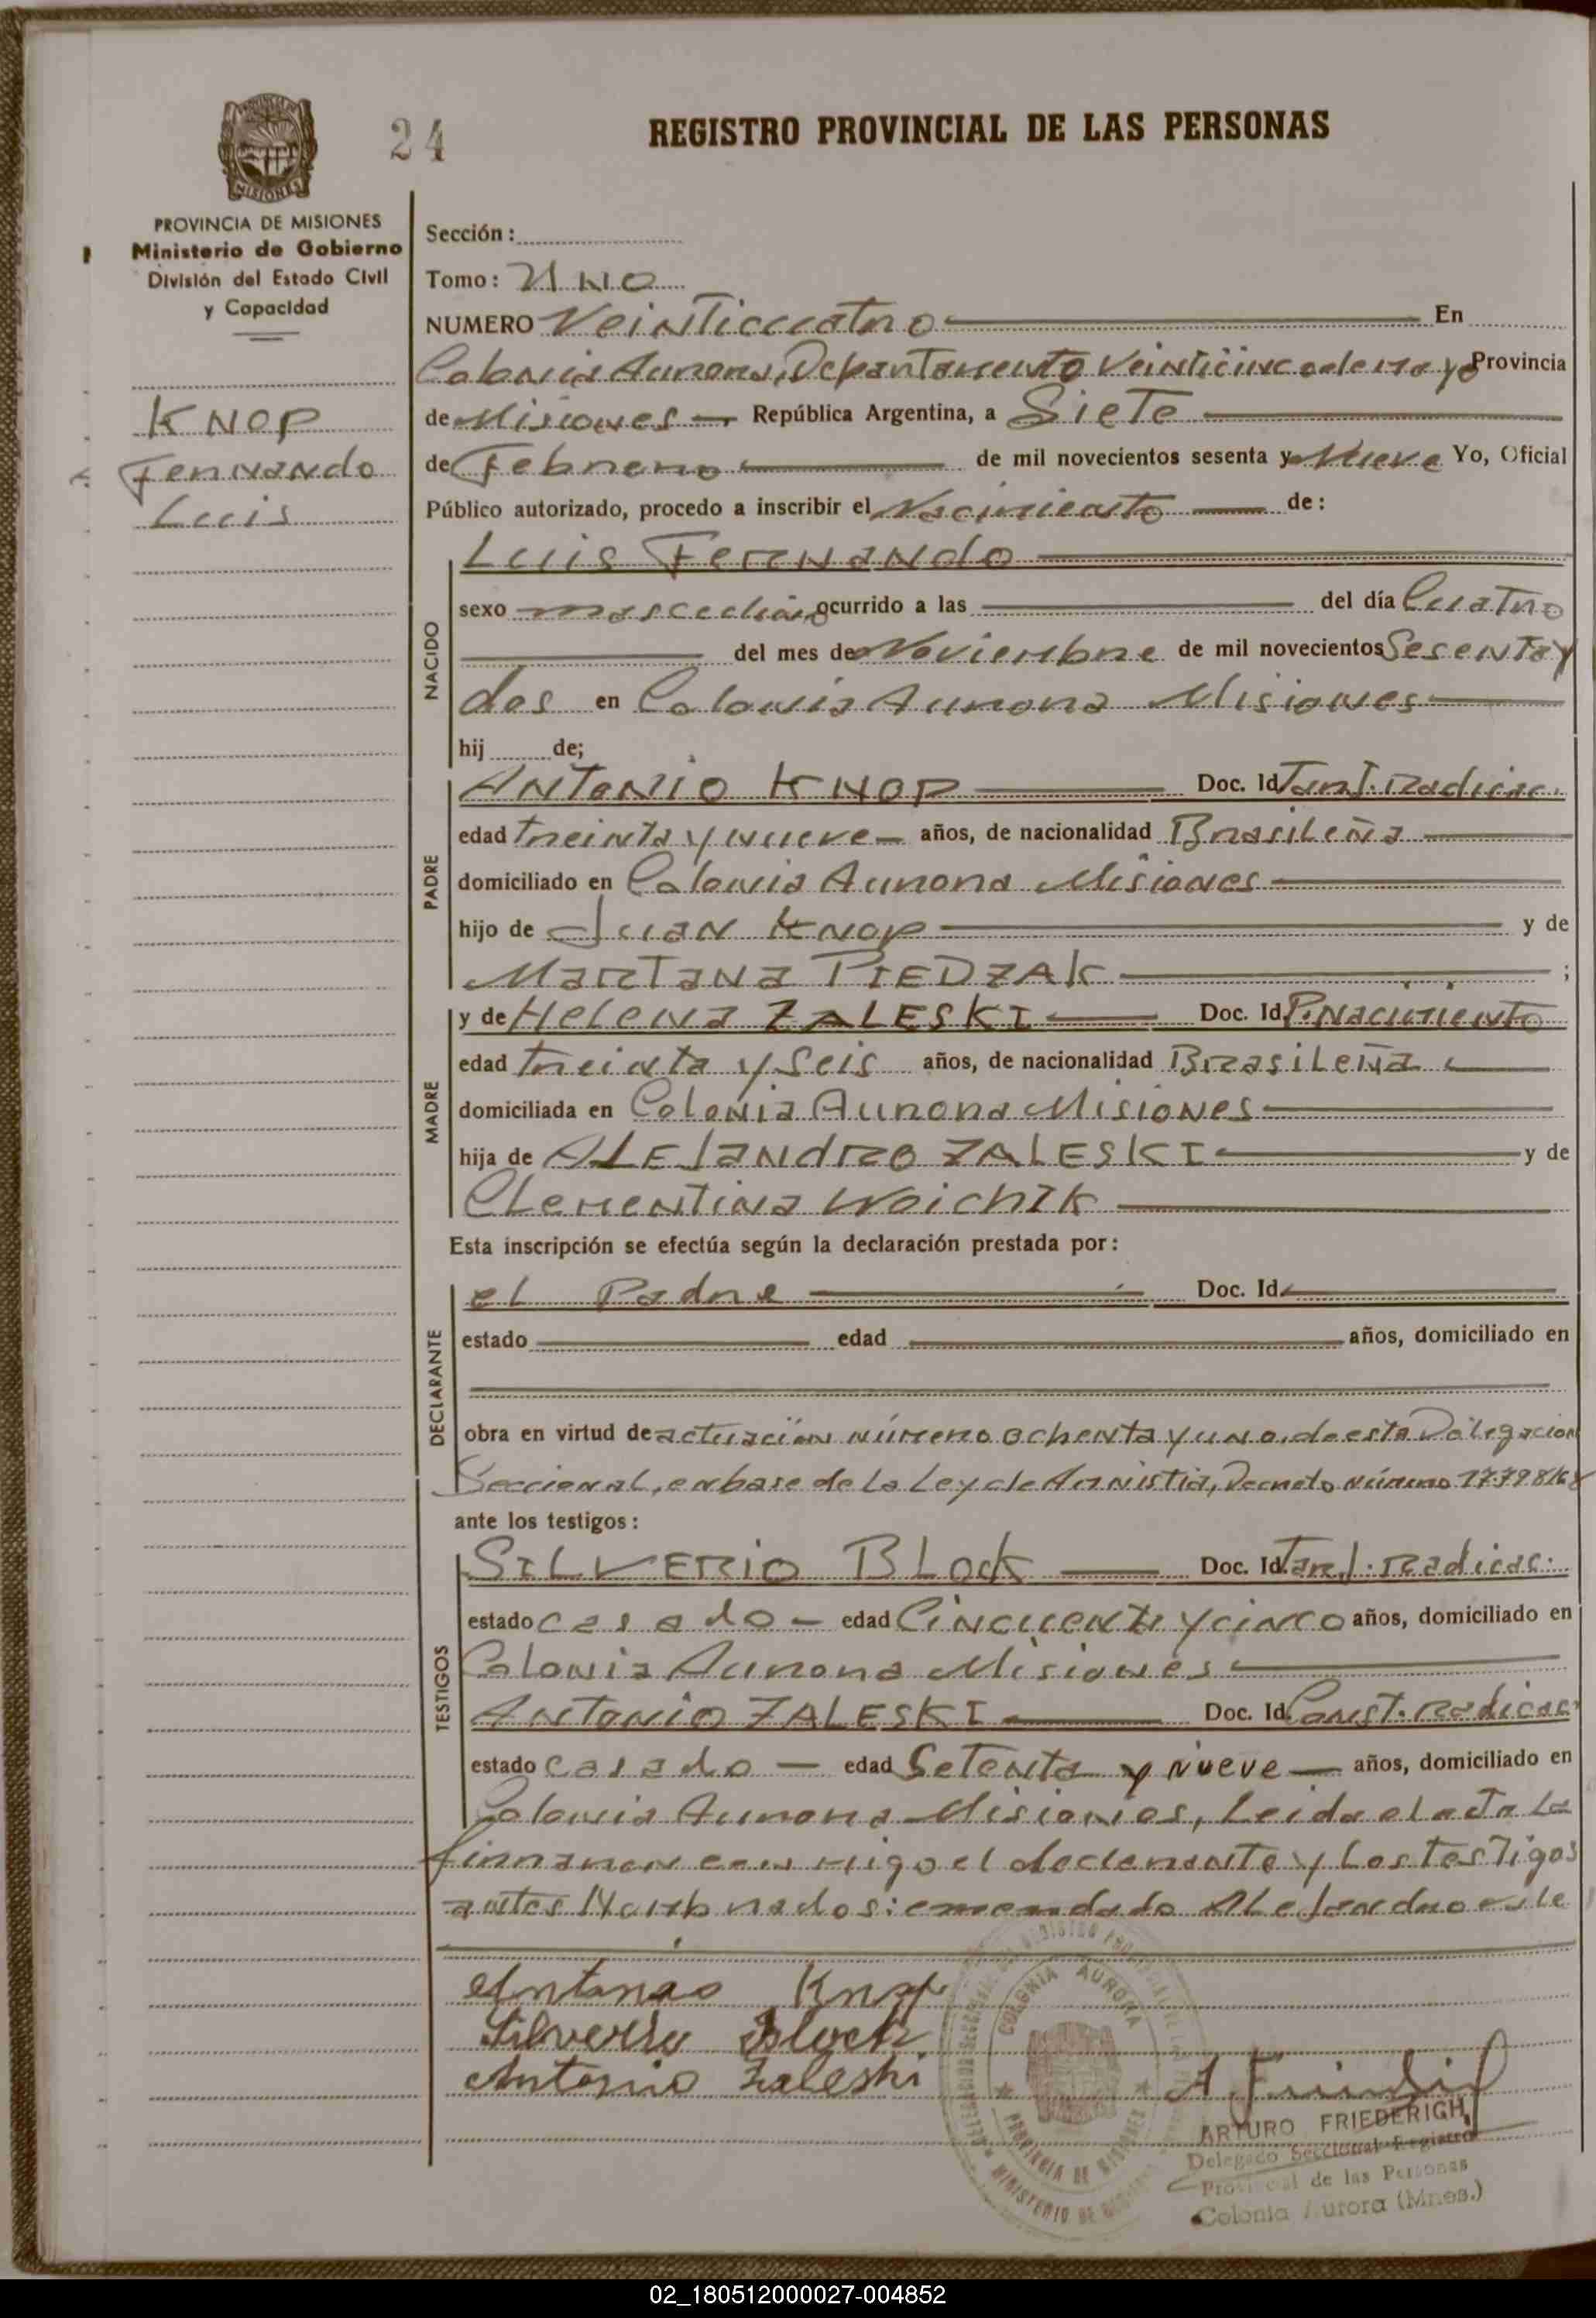 24
REGISTRO PROVINCIAL DE LAS PERSONAS
MISIONES
PROVINCIA DE MISIONES
Ministerio de Gobierno
División del Estado Civil
y Capacidad
KNOP
Fernando
Luis
Sección :
Tomo : UNO
NUMERO Veinticuatro En
Colonia Aurora, Departamento Veinticinco de Mayo Provincia
de Misiones República Argentina, a Siete
de Febrero de mil novecientos sesenta y Nueve Yo, Oficial
Público autorizado, procedo a inscribir el Nacimiento de :
NACIDO
Luis Fernando
sexo masculino ocurrido a las del día Cuatro
del mes de Noviembre de mil novecientos Sesenta y
dos en Colonia Aurora Misiones
hij de;
PADRE
Antonio KNOP Doc. Id Tarj. Radicac.
edad treinta y nueve años, de nacionalidad Brasileña
domiciliado en Colonia Aurora Misiones
hijo de Juan KNOP y de
Martana PIEDZAK ;
MADRE
y de Helena ZALESKI Doc. Id P. Nacimiento
edad treinta y Seis años, de nacionalidad Brasileña
domiciliada en Colonia Aurora Misiones
hija de ALEJandro ZALESKI y de
Clementina Woichik
Esta inscripción se efectúa según la declaración prestada por :
DECLARANTE
el Padre Doc. Id
estado edad años, domiciliado en
obra en virtud de actuación número ochenta y uno, de esta Delegación
Seccional, en base de La Ley de Amnistia, Decreto número 17.798/68
ante los testigos :
TESTIGOS
SILVERIO BLOCK Doc. Id. Tarj. Radicac.
estado casado edad Cincuenta y cinco años, domiciliado en
Colonia Aurora Misiones
Antonio ZALESKI Doc. Id. Const. Radicac
estado casado edad Setenta y nueve años, domiciliado en
Colonia Aurora Misiones, Leida el acta La
firmaron conmigo el declarante y Los testigos
antes Nombrados: emendado ALeJandro vale
Antonio Knop
Silverio Block
Antonio Zaleski
COLONIA AURORA
PROVINCIA DE MISIONES
MINISTERIO DE
ARTURO FRIEDERICH
Delegado Seccional Registro
Provincial de las Personas
Colonia Aurora (Mnes.)
02_180512000027-004852